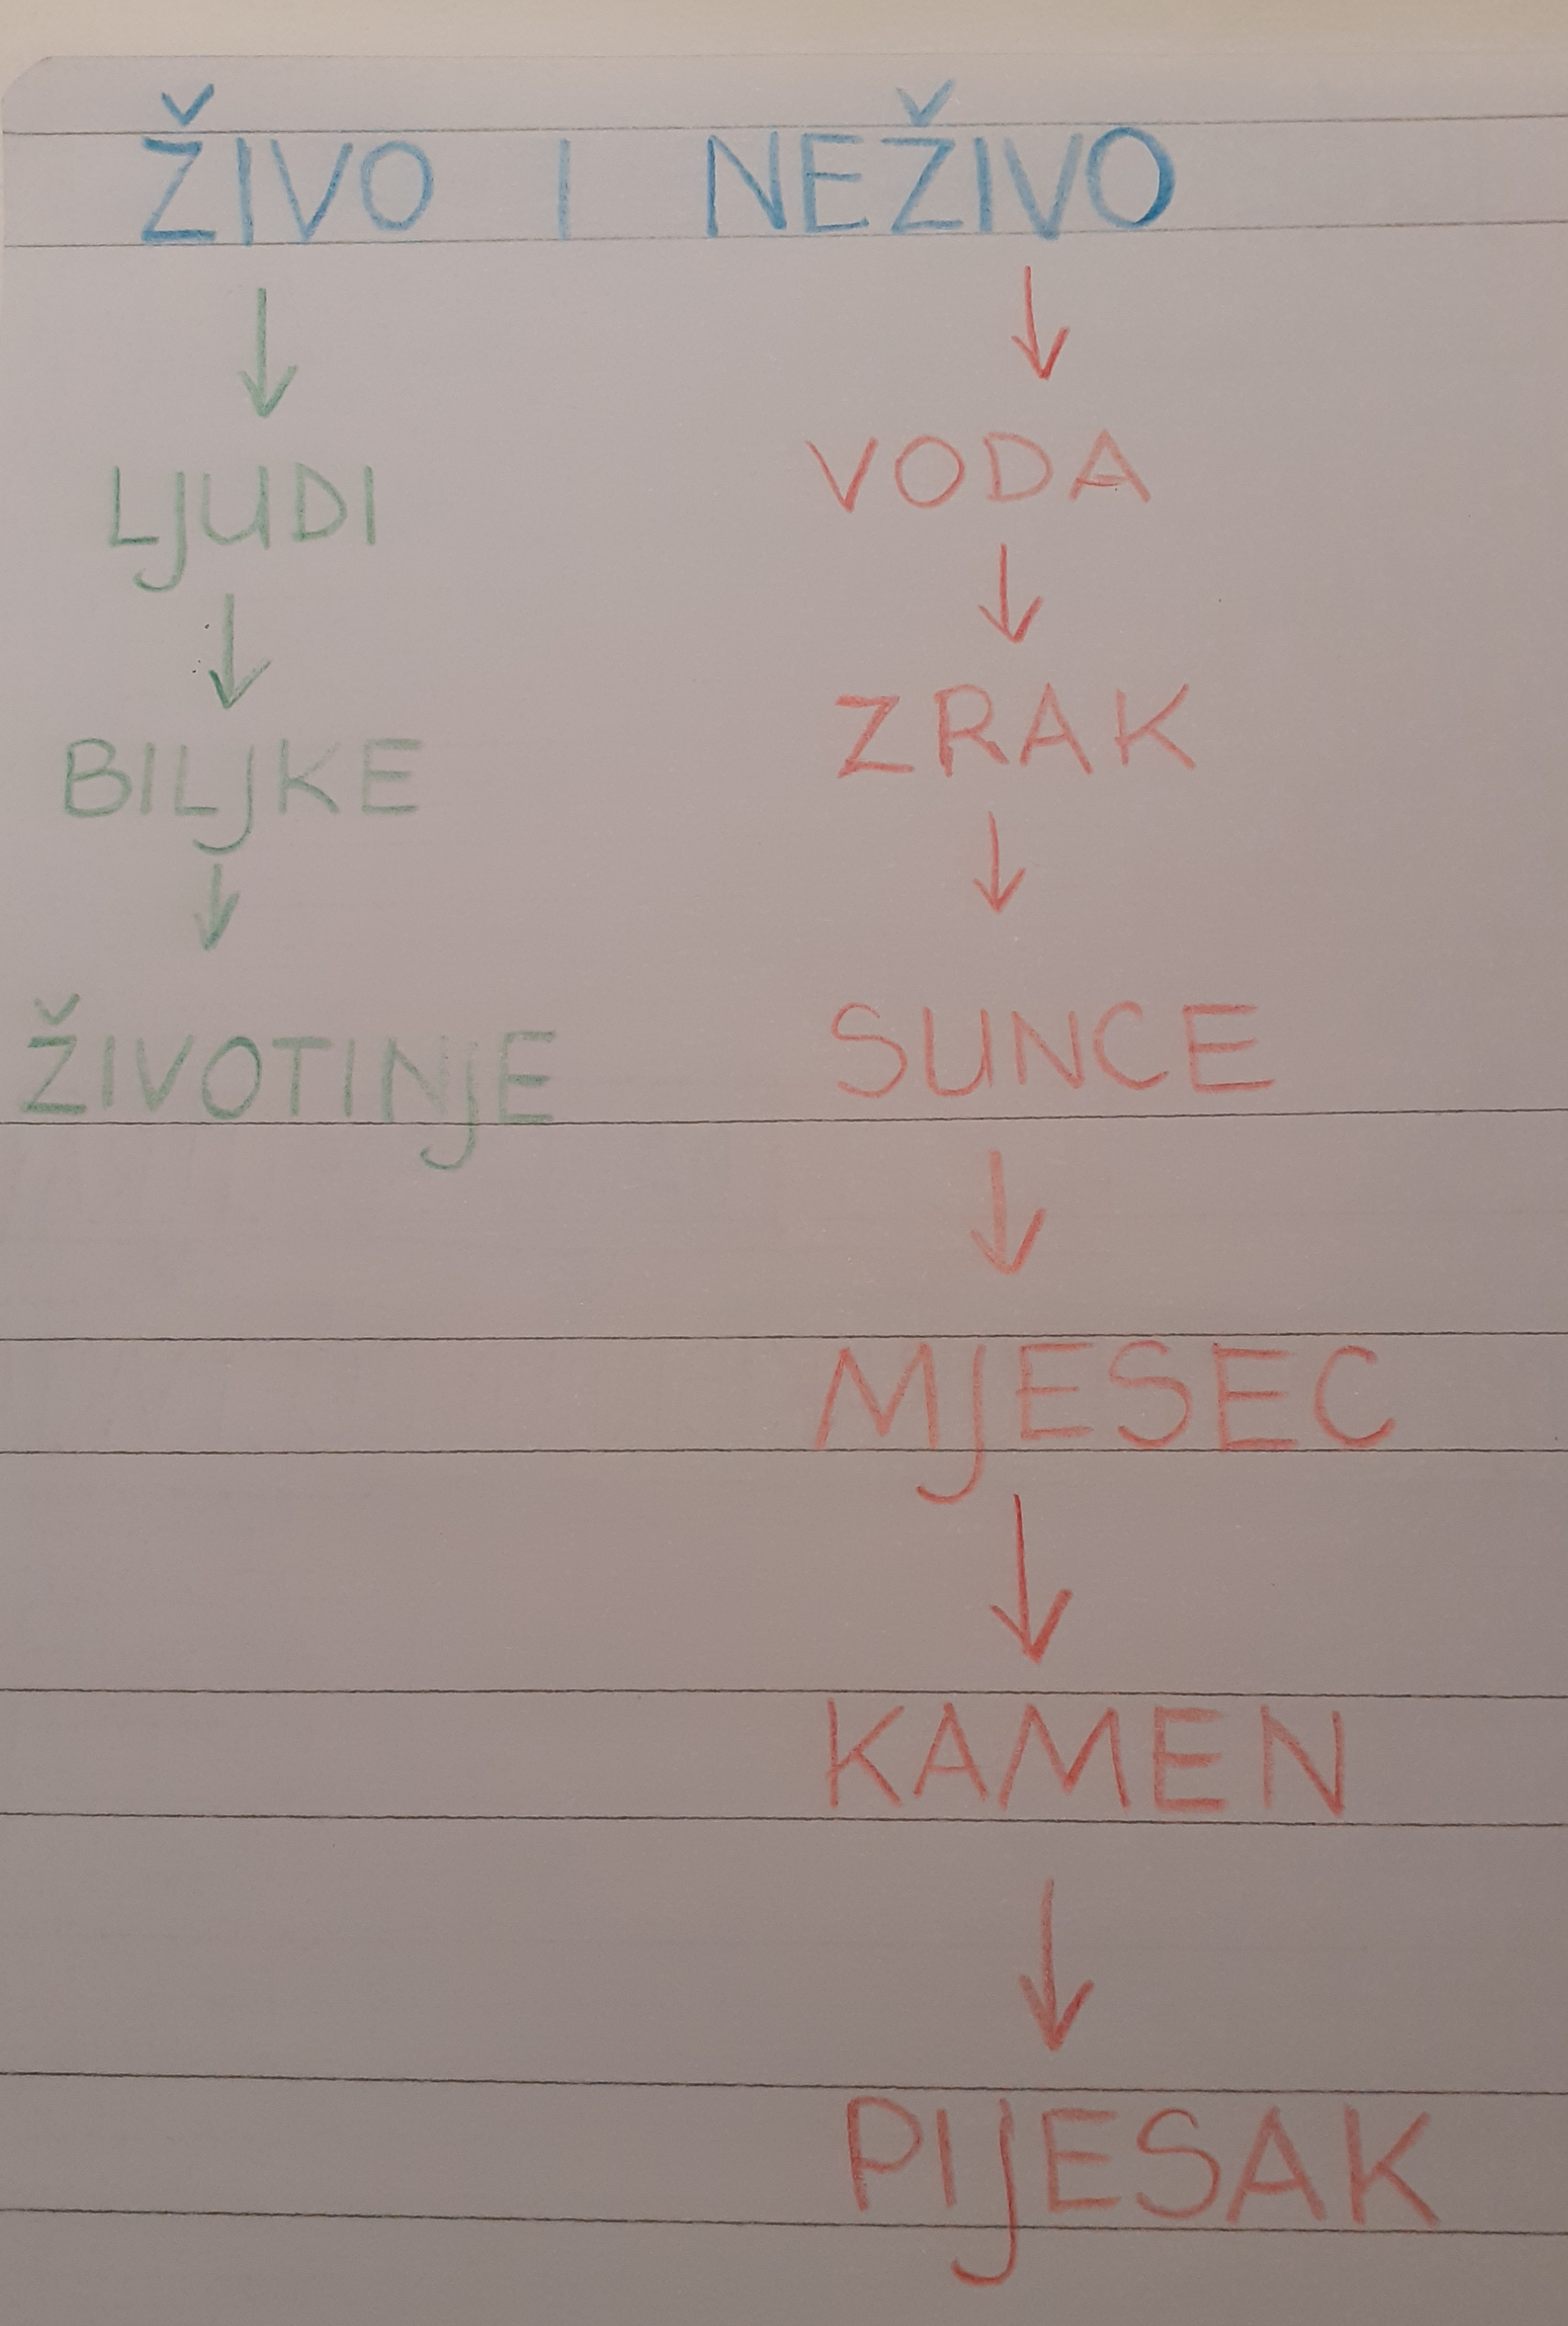 ŽIVO I NEŽIVO
LJUDI
BILJKE
ŽIVOTINJE
VODA
ZRAK
SUNCE
MJESEC
KAMEN
PIJESAK